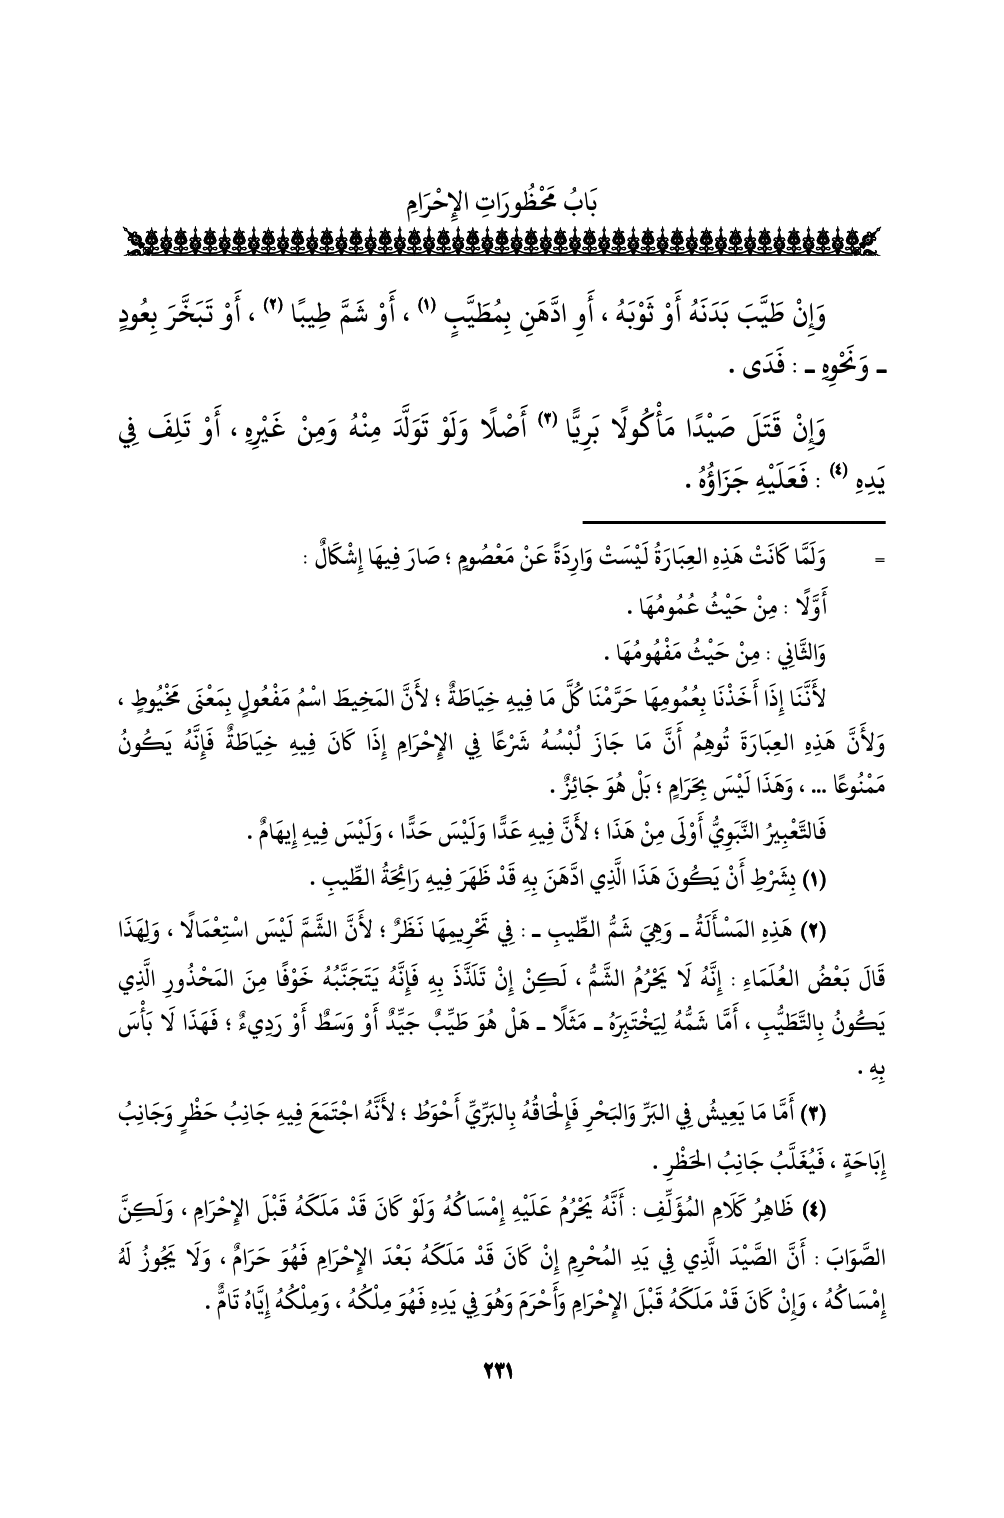 بَابُ مَحْظُورَاتِ الإِحْرَامِ
وَإِنْ طَيَّبَ بَدَنَهُ أَوْ ثَوْبَهُ ، أَوِ ادَّهَنِ بِمُطَيَّبٍ (١) ، أَوْ شَمَّ طِيبًا (٢) ، أَوْ تَبَخَّرَ بِعُودٍ
ـ وَنَحْوِهِ ـ : فَدَى .
وَإِنْ قَتَلَ صَيْدًا مَأْكُولًا بَرِيًّا (٣) أَصْلًا وَلَوْ تَوَلَّدَ مِنْهُ وَمِنْ غَيْرِهِ ، أَوْ تَلِفَ فِي
يَدِهِ (٤) : فَعَلَيْهِ جَزَاؤُهُ .
= وَلَمَّا كَانَتْ هَذِهِ العِبَارَةُ لَيْسَتْ وَارِدَةً عَنْ مَعْصُومٍ ؛ صَارَ فِيهَا إِشْكَالٌ :
أَوَّلًا : مِنْ حَيْثُ عُمُومُهَا .
وَالثَّانِي : مِنْ حَيْثُ مَفْهُومُهَا .
لأَنَّنَا إِذَا أَخَذْنَا بِعُمُومِهَا حَرَّمْنَا كُلَّ مَا فِيهِ خِيَاطَةٌ ؛ لأَنَّ المَخِيطَ اسْمُ مَفْعُولٍ بِمَعْنَى مَخْيُوطٍ ،
وَلأَنَّ هَذِهِ العِبَارَةَ تُوهِمُ أَنَّ مَا جَازَ لُبْسُهُ شَرْعًا فِي الإِحْرَامِ إِذَا كَانَ فِيهِ خِيَاطَةٌ فَإِنَّهُ يَكُونُ
مَمْنُوعًا ... ، وَهَذَا لَيْسَ بِحَرَامٍ ؛ بَلْ هُوَ جَائِزٌ .
فَالتَّعْبِيرُ النَّبَوِيُّ أَوْلَى مِنْ هَذَا ؛ لأَنَّ فِيهِ عَدًّا وَلَيْسَ حَدًّا ، وَلَيْسَ فِيهِ إِيهَامٌ .
(١) بِشَرْطِ أَنْ يَكُونَ هَذَا الَّذِي ادَّهَنَ بِهِ قَدْ ظَهَرَ فِيهِ رَائِحَةُ الطِّيبِ .
(٢) هَذِهِ المَسْأَلَةُ ـ وَهِيَ شَمُّ الطِّيبِ ـ : فِي تَحْرِيمِهَا نَظَرٌ ؛ لأَنَّ الشَّمَّ لَيْسَ اسْتِعْمَالًا ، وَلِهَذَا
قَالَ بَعْضُ العُلَمَاءِ : إِنَّهُ لَا يَحْرُمُ الشَّمُّ ، لَكِنْ إِنْ تَلَذَّذَ بِهِ فَإِنَّهُ يَتَجَنَّبُهُ خَوْفًا مِنَ المَحْذُورِ الَّذِي
يَكُونُ بِالتَّطَيُّبِ ، أَمَّا شَمُّهُ لِيَخْتَبِرَهُ ـ مَثَلًا ـ هَلْ هُوَ طَيِّبٌ جَيِّدٌ أَوْ وَسَطٌ أَوْ رَدِيءٌ ؛ فَهَذَا لَا بَأْسَ
بِهِ .
(٣) أَمَّا مَا يَعِيشُ فِي البَرِّ وَالبَحْرِ فَإِلْحَاقُهُ بِالبَرِّيِّ أَحْوَطُ ؛ لأَنَّهُ اجْتَمَعَ فِيهِ جَانِبُ حَظْرٍ وَجَانِبُ
إِبَاحَةٍ ، فَيُغَلَّبُ جَانِبُ الحَظْرِ .
(٤) ظَاهِرُ كَلَامِ المُؤَلِّفِ : أَنَّهُ يَحْرُمُ عَلَيْهِ إِمْسَاكُهُ وَلَوْ كَانَ قَدْ مَلَكَهُ قَبْلَ الإِحْرَامِ ، وَلَكِنَّ
الصَّوَابَ : أَنَّ الصَّيْدَ الَّذِي فِي يَدِ المُحْرِمِ إِنْ كَانَ قَدْ مَلَكَهُ بَعْدَ الإِحْرَامِ فَهُوَ حَرَامٌ ، وَلَا يَجُوزُ لَهُ
إِمْسَاكُهُ ، وَإِنْ كَانَ قَدْ مَلَكَهُ قَبْلَ الإِحْرَامِ وَأَحْرَمَ وَهُوَ فِي يَدِهِ فَهُوَ مِلْكُهُ ، وَمِلْكُهُ إِيَّاهُ تَامٌّ .
٢٣١